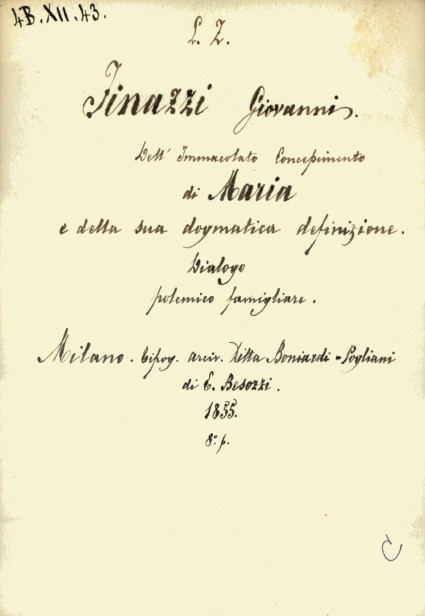 4B.XII.43.
L. Z.
Finazzi Giovanni.
Dell' Immacolato Concepimento
di Maria
e della sua dogmatica definizione.
Dialogo
polemico famigliare.
Milano. tipog. arciv. Ditta Boniardi-Pogliani
di E. Besozzi.
1855.
8.° p.
C